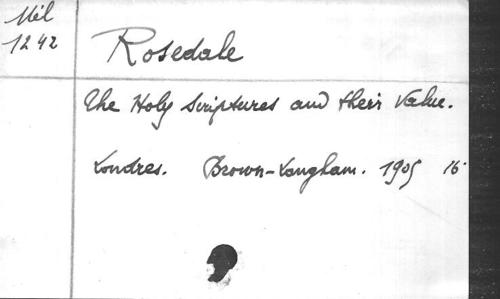 Mél
1242
Rosedale
The Holy Scriptures and their Value.
Londres. Brown-Langham. 1905 16